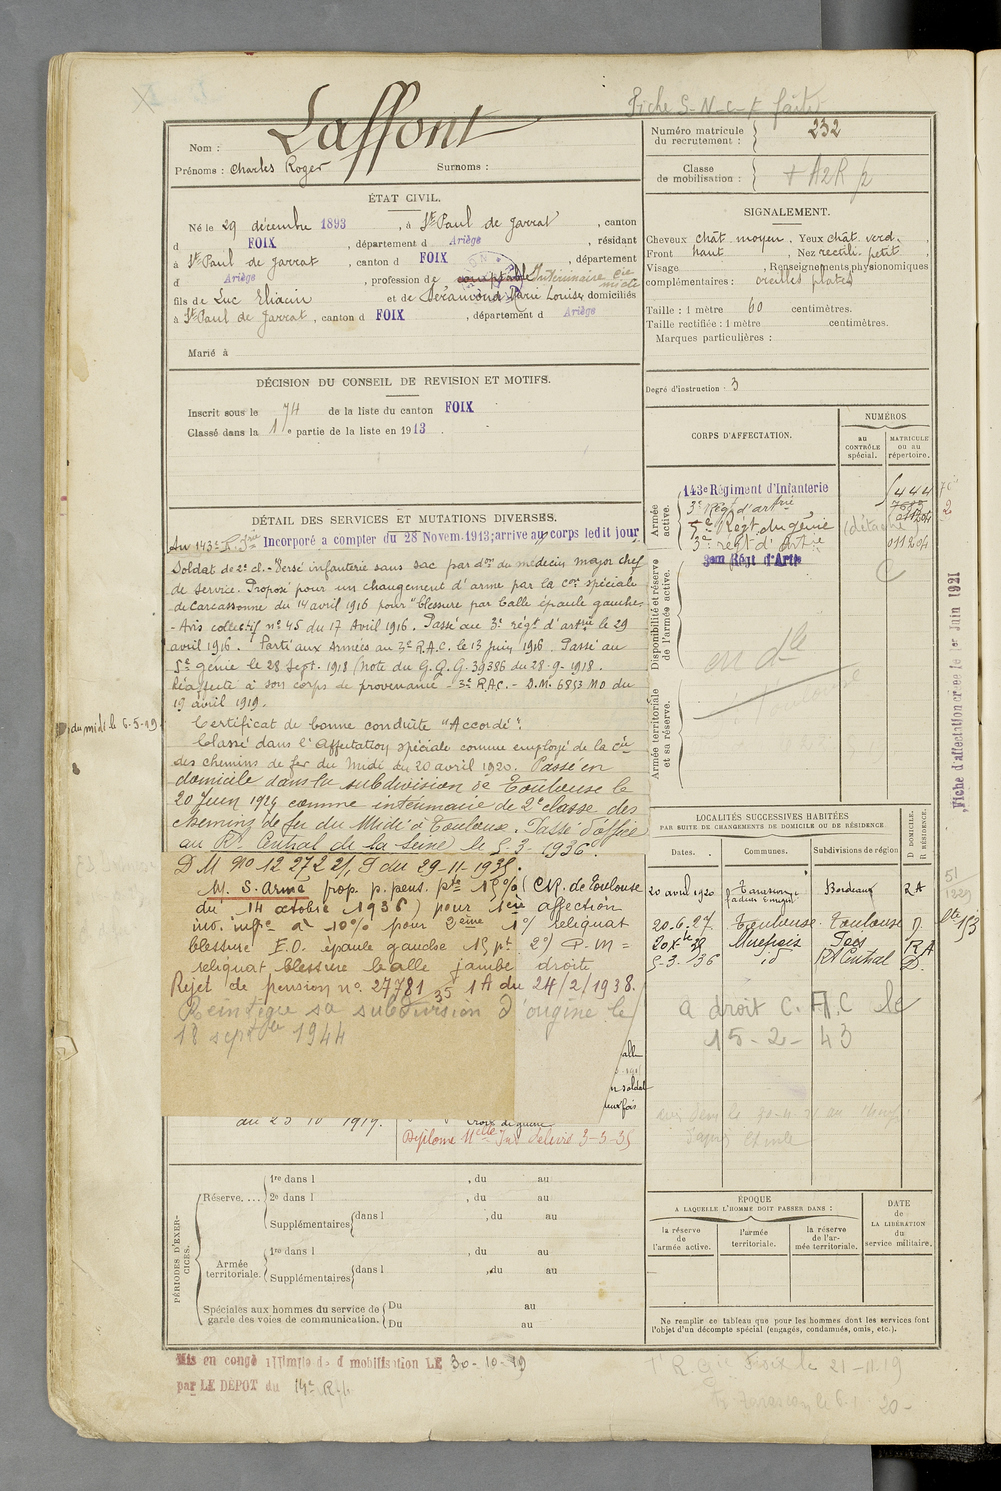 Fiche S-N-C-F faite
Nom : Laffont
Prénoms : Charles Roger Surnoms :
Numéro matricule du recrutement : 232
Classe de mobilisation : + A2R
ÉTAT CIVIL.
Né le 29 décembre 1893, à St Paul de Jarrat, canton
d FOIX, département d Ariège, résidant
à St Paul de Jarrat, canton d FOIX, département
d Ariège, profession de comptable Intérimaire Cie midi
fils de Luc Eliacin et de Séranvonde Marie Louise, domiciliés
à St Paul de Jarrat, canton d FOIX, département d Ariège
Marié à
SIGNALEMENT.
Cheveux chât. moyen. Yeux chât. verd.
Front haut, Nez rectili. petit
Visage , Renseignements physionomiques
complémentaires : oreilles plates
Taille : 1 mètre 60 centimètres.
Taille rectifiée : 1 mètre centimètres.
Marques particulières :
Degré d'instruction : 3
DÉCISION DU CONSEIL DE REVISION ET MOTIFS.
Inscrit sous le 74 de la liste du canton FOIX
Classé dans la 1e partie de la liste en 1913.
DÉTAIL DES SERVICES ET MUTATIONS DIVERSES.
Au 143e R. Irie Incorporé à compter du 28 Novem. 1913; arrivé au corps ledit jour
Soldat de 2e cl. - Versé infanterie sans sac par don du médecin major chef
de service. Proposé pour un changement d'arme par la Con spéciale
de Carcassonne du 14 avril 1916 pour "blessure par balle épaule gauche."
- Avis collectif no 45 du 17 Avril 1916. Passé au 3e régt d'artrie le 29
avril 1916. Parti aux Armées au 3e R.A.C. le 13 Juin 1916. Passé au
5e génie le 28 Sept. 1918 (Note du G.Q.G. 39386 du 28-9-1918.
Réaffecté à son corps de provenance - 3e R.A.C. - D.M. 6853 MD du
19 avril 1919.
Certificat de bonne conduite "Accordé".
Classé dans l'Affectation spéciale comme employé de la Cie
des chemins de fer du Midi du 20 avril 1920. Passé en
domicile dans la subdivision de Toulouse le
20 Juin 1927 comme intérimaire de 2e classe des
chemins de fer du Midi à Toulouse. Passé d'office
au Rt Central de la Seine le 5-3-1936.
du midi le 6-5-19
D M No 12 272 2/5 G du 29-11-1935.
M. S. Armé prop. p. pens. pte 15% (C.R. de Toulouse
du 14 octobre 1936) pour 1ère affection
inv. infre à 10% pour 2ème 1°/ reliquat
blessure E.O. épaule gauche 15 pt 2°/ P.M =
reliquat blessure balle jambe droite
Rejet de pension no. 27781 35 1A du 24/2/1938.
Réintègre sa subdivision d'origine le
18 septbre 1944
alle
n soldat
deux fois
au 25 10 1919.
Croix de guerre
Diplome Melle Int. délivré 3-5-35
CORPS D'AFFECTATION.
NUMÉROS
AU CONTRÔLE spécial.
MATRICULE OU AU répertoire.
Armée active.
143e Régiment d'Infanterie 444
3e Régt d'artrie
5e Régt du génie (détaché
3e régt d'Artie 011204
3eme Régt d'Artie
Disponibilité et réserve de l'armée active.
en dle
Armée territoriale et sa réserve.
Fiche d'affectation créée le 1er Juin 1921
LOCALITÉS SUCCESSIVES HABITÉES
PAR SUITE DE CHANGEMENTS DE DOMICILE OU DE RÉSIDENCE.
Dates. Communes. Subdivisions de région D DOMICILE. R RÉSIDENCE.
20 avril 1920 Tarascon Bordeaux R A
20.6.27. Toulouse. Toulouse D.
Foix R A
5-3-36 id Rt Central D.
a droit C. A. C le
15-2-43
ÉPOQUE
A LAQUELLE L'HOMME DOIT PASSER DANS :
la réserve de l'armée active.
l'armée territoriale.
la réserve de l'armée territoriale.
DATE de LA LIBÉRATION du service militaire.
Ne remplir ce tableau que pour les hommes dont les services font
l'objet d'un décompte spécial (engagés, condamnés, omis, etc.).
PÉRIODES D'EXERCICES.
Réserve. ... 1re dans l , du au
2e dans l , du au
Supplémentaires dans l , du au
Armée territoriale. 1re dans l , du au
Supplémentaires dans l , du au
Spéciales aux hommes du service de garde des voies de communication. Du au
Du au
Mis en congé illimité de démobilisation LE 30-10-19
par LE DÉPOT du 14e
le 21-11-19
Tarascon le 6.1 20-